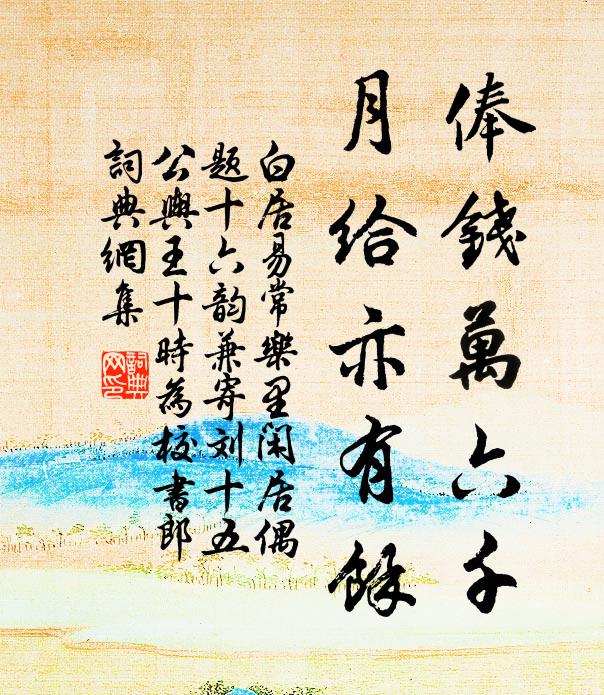 俸錢萬六千
月給亦有餘
白居易常樂里闲居偶
题十六韵兼寄刘十五
公輿王十時為校書郎
詞典網集
詞典
网印